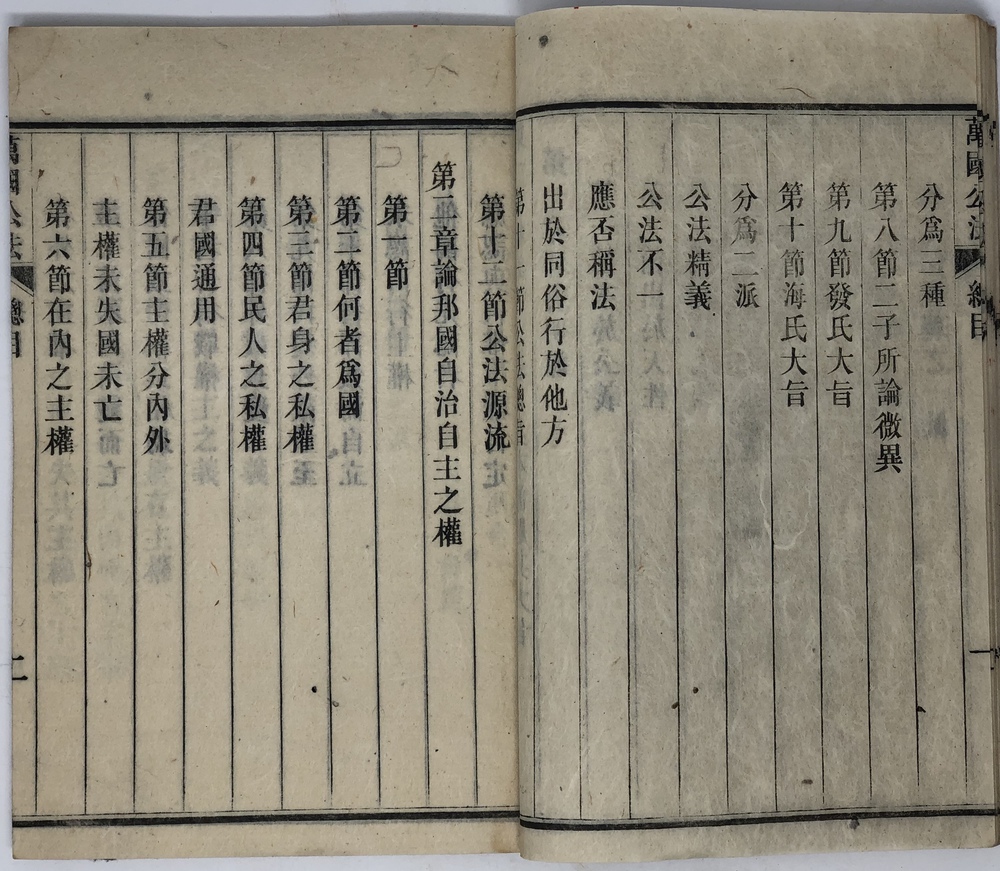 萬國公法 總目 一
分爲三種
第八節二子所論微異
第九節發氏大旨
第十節海氏大旨
分爲二派
公法精義
公法不一
應否稱法
出於同俗行於他方
第十一節公法總旨
第十二節公法源流
第二章論邦國自治自主之權
第一節
第二節何者爲國
第三節君身之私權
第四節民人之私權
君國通用
第五節主權分內外
主權未失國未亡
第六節在內之主權
萬國公法 總目 二